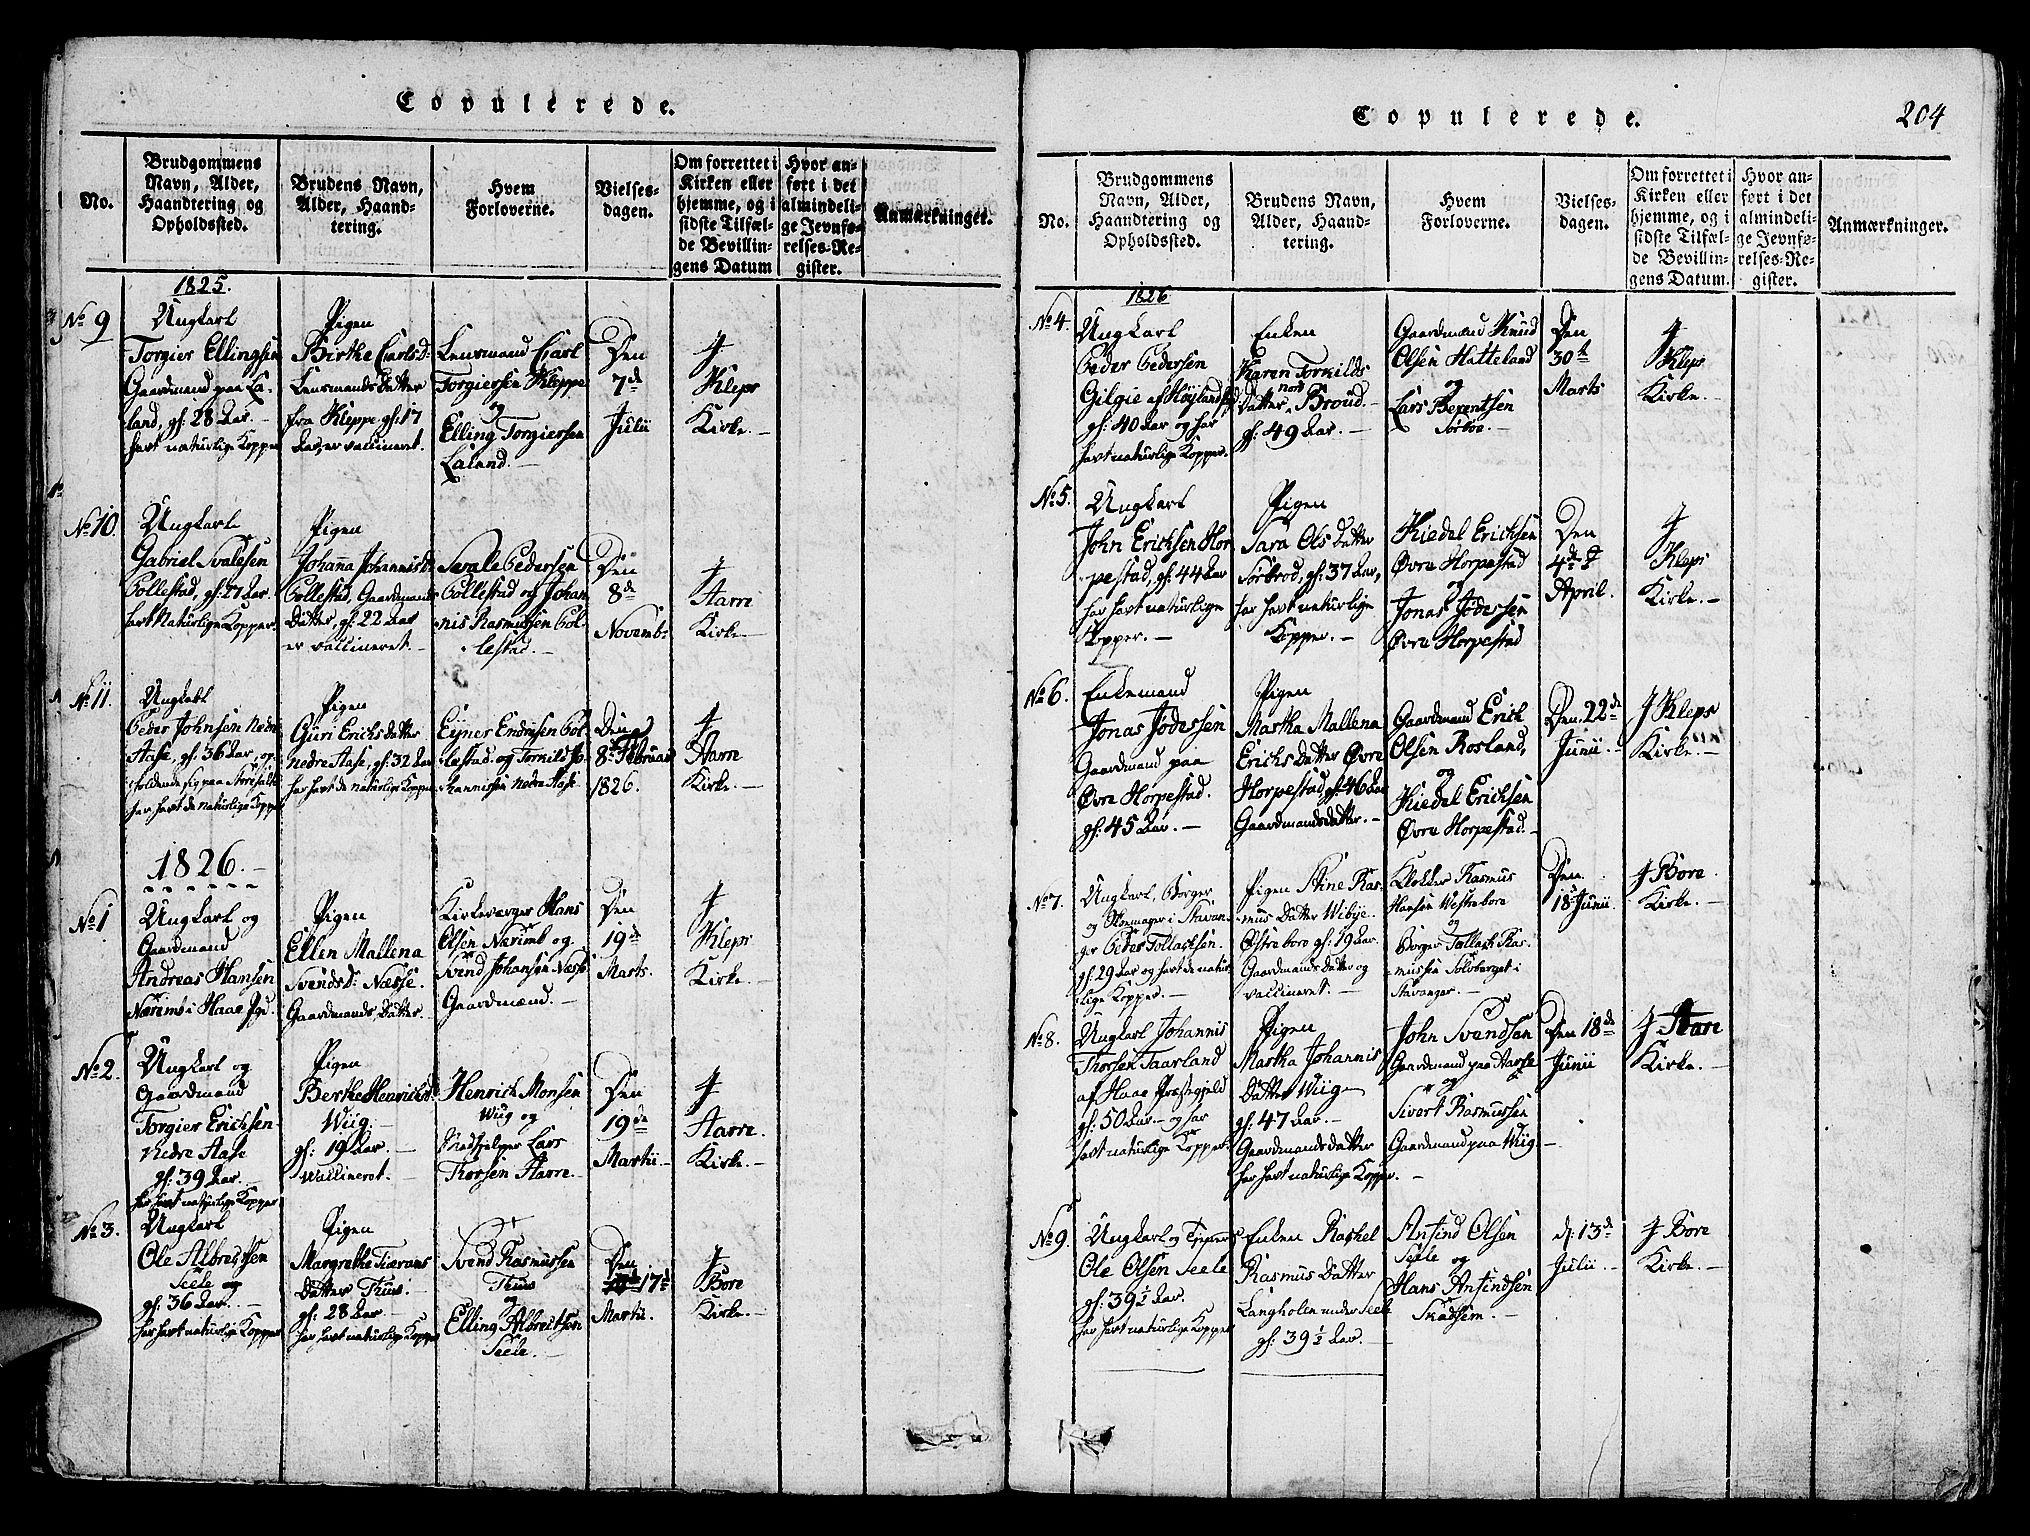 Copulerede.
No.
Brudgommens
Navn, Alder,
Haandtering og
Opholdssted.
Brudens Navn,
Alder, Haand-
tering.
Hvem
Forloverne.
Vielses-
dagen.
Om forrettet i
Kirken eller
hjemme, og i
sidste Tilfæl-
de Bevillin-
gens Datum
Hvor an-
ført i det
almindeli-
ge Jevnfø-
relses-Re-
gister.
Anmærkninger.
1825.
No 9
Ungkarl
Torgier Ellingsen
Gaardmand paa La-
land, gl: 28 Aar.
havt naturlige Kopper
Pigen
Birthe Carlsd:
Lensmands Datter
fra Kleppe gl: 17
Aar, er vaccineret.
Lensmand Carl
Torgiersen Kleppe
og
Elling Torgiersen
Laland.
Den
7de
Julii
I
Kleps
Kirke.
No 10.
Ungkarl
Gabriel Svalesen
Pollestad, gl: 27 Aar
havt Naturlige Kopper.
Pigen
Johanna Johannisd:
Pollestad, Gaardmands
Datter, gl: 22 Aar
er vaccineret.
Svale Pedersen
Pollestad og Johan-
nis Rasmusen Pol-
lestad.
Den
8de
Novemb:
I
Harre
Kirke
No 11.
Ungkarl
Peder Johnsen Nedre
Aase, gl: 36 Aar, op-
holdende sig paa
har havt de naturlige Kopper
Pigen
Guri Erichs datter
nedre Aase, gl: 32 Aar
har havt de naturlige Kopper
Ejner Endresen Pol-
lestad og Torkild Jo-
hannissen nedre Aase
Den
8de Februar
1826.
I
Harre
Kirke.
1826.
No 1
Ungkarl og
Gaardmand
Andreas Hansen
Nærem i Haae Pgd.
Pigen
Ellen Mallena
Svendsd: Næsse.
Gaardmands Datter.
Kirkeværger Hans
Olsen Nærem og
Svend Johansen Næsse
Gaardmænd.
Den
19de
Marts.
I
Kleps
Kirke.
No 2.
Ungkarl og
Gaardmand
Torgier Erichsen
nedre Aase
gl: 39 Aar.
har havt naturlige Kopper
Pigen
Berthe Henrichsd:
Wiig.
gl: 19 Aar.
Vaccineret.
Henrich Monsen
Wiig og
Medhjelper Lars
Thorsen Harre.
Den
19de
Martii
I
Harre.
Kirke.
No 3.
Ungkarl
Ole Albretsen
Seele og
gl: 36 Aar.
har havt naturlige Kopper
Pigen
Margrethe
Datter Thuu.
gl: 28 Aar
har havt naturlige Kopper
Svend Rasmussen
Thuu
og
Elling Albreitsen
Seele.
Den
17de
Martii.
I
Bore
Kirke.
Copulerede.
204
No.
Brudgommens
Navn, Alder,
Haandtering og
Opholdssted.
Brudens Navn,
Alder, Haand-
tering.
Hvem
Forloverne.
Vielses-
dagen.
Om forrettet i
Kirken eller
hjemme, og i
sidste Tilfæl-
de Bevillin-
gens Datum.
Hvor an-
ført i det
almindeli-
ge Jevnfø-
relses-Re-
gister.
Anmærkninger.
1826
No 4.
Ungkarl
Peder Pedersen
Gilgie af Høyland Pgd
gl: 40 Aar og har
havt naturlige Kopper.
Enken
Karen Torkilds
Datter, nord Broud.
gl: 49 Aar.
Gaardmand Knud
Olsen Hatteland
og
Lars Berentsen
Sørboe.
Den
30te
Marts
I
Kleps
Kirke.
No 5.
Ungkarl
John Erichsen Hor-
pestad, gl: 44 Aar
har havt naturlige
Kopper.
Pigen
Sara Ols Datter
Sørbrod, gl: 37 Aar,
har havt naturlige
Kopper.
Kiedel Erichsen
Øvre Horpestad
og
Jonas Jodessen
Øvre Horpestad
Den
4de
April.
I
Kleps
Kirke.
No 6.
Enkemand
Jonas Jodessen
Gaardmand paa
Øvre Horpestad.
gl: 45 Aar.
Pigen
Martha Mallena
Erichs Datter Øvre
Horpestad gl: 46 Aar
Gaardmandsdatter.
Gaardmand Erich
Olsen Rosland,
og
Kiedel Erichsen
Øvre Horpestad.
Den 22de
Junii.
I Kleps
Kirke.
No 7.
Ungkarl, Borger
og Skomager i Stavan-
ger Peder Tollachsen.
gl: 29 Aar og havt de natur-
lige Kopper.
Pigen Stine Ras-
mus Datter Wibye.
Østrebore gl: 19 Aar.
Gaardmands Datter og
vaccineret.
Klokker Rasmus
Hansen Vestrebore
og
Borger Tollach Ras-
mussen Solvberget i
Stavanger.
Den
18de Junii.
I Bore.
Kirke.
No 8.
Ungkarl Johannis
Thorsen Taarland
af Haae Præstegield
gl: 50 Aar og har
havt naturlige Kopper.
Pigen
Martha Johannis
Datter Wiig
gl: 47 Aar.
Gaardmands datter
har havt naturlige Kopper.
John Svendsen
Gaardmand paa
og
Sivert Rasmussen
Gaardmand paa Wiig
Den 18de
Junii
I Harre
Kirke.
No 9.
Ungkarl og
Ole Olsen Seele
gl: 39 1/2 Aar.
har havt naturlige Kopper
Enken Rachel
Rasmus Datter
Langholen under Seele
gl: 39 1/2 Aar.
Ansind Olsen
Seele og
Hans Ansindsen
Skadsem.
d: 13de
Julii.
I Bore
Kirke.